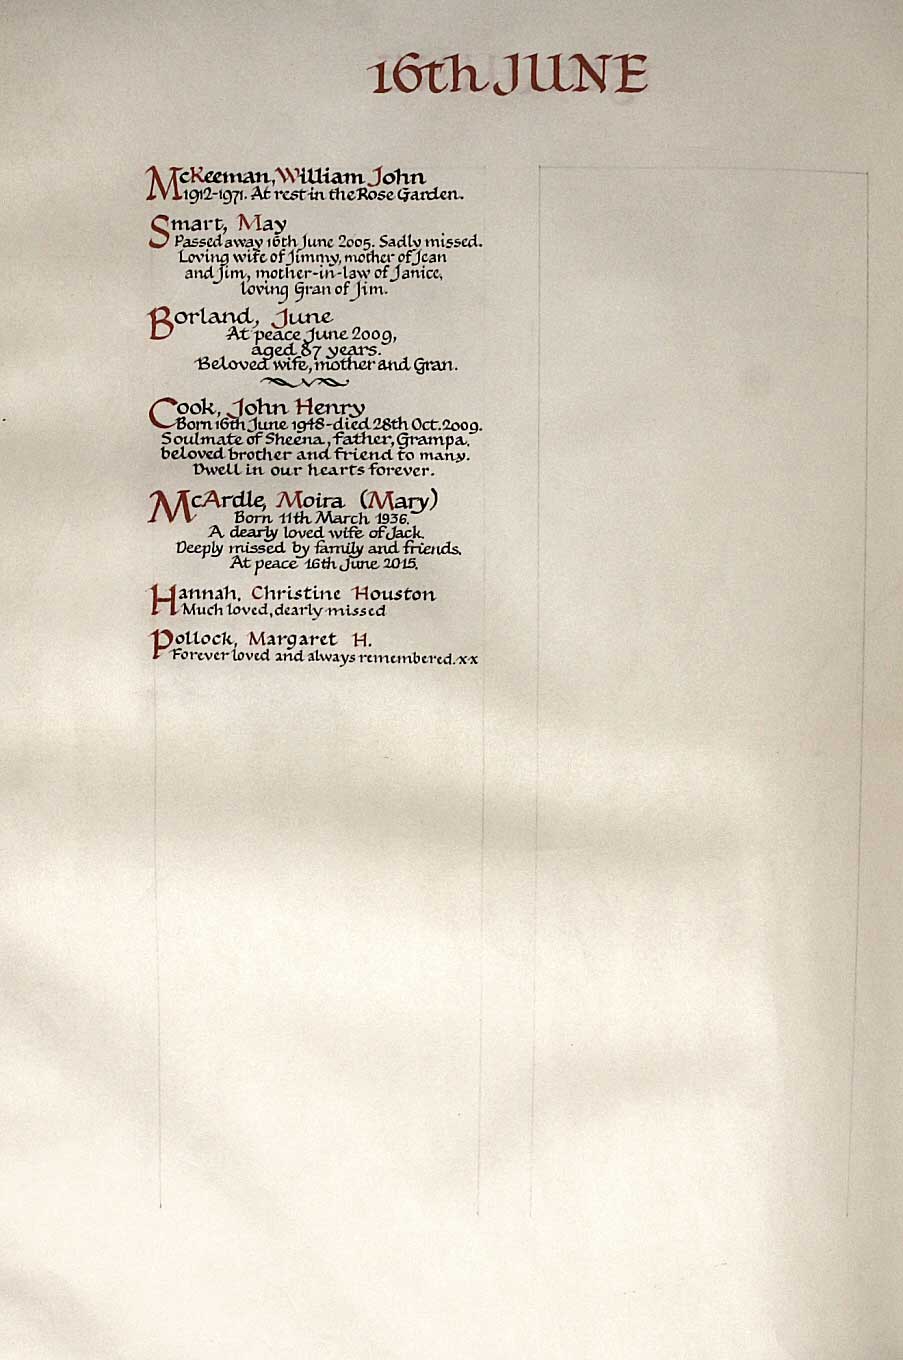 16th JUNE
McKeeman, William John
1912-1971. At rest in the Rose Garden.
Smart, May
Passed away 16th June 2005. Sadly missed.
Loving wife of Jimmy, mother of Jean
and Jim, mother-in-law of Janice,
loving Gran of Jim.
Borland, June
At peace June 2009,
aged 87 years.
Beloved wife, mother and Gran.
Cook, John Henry
Born 16th June 1948-died 28th Oct. 2009.
Soulmate of Sheena, father, Grampa,
beloved brother and friend to many.
Dwell in our hearts forever.
McArdle, Moira (Mary)
Born 11th March 1936.
A dearly loved wife of Jack.
Deeply missed by family and friends.
At peace 16th June 2015.
Hannah, Christine Houston
Much loved, dearly missed
Pollock, Margaret H.
Forever loved and always remembered. xx